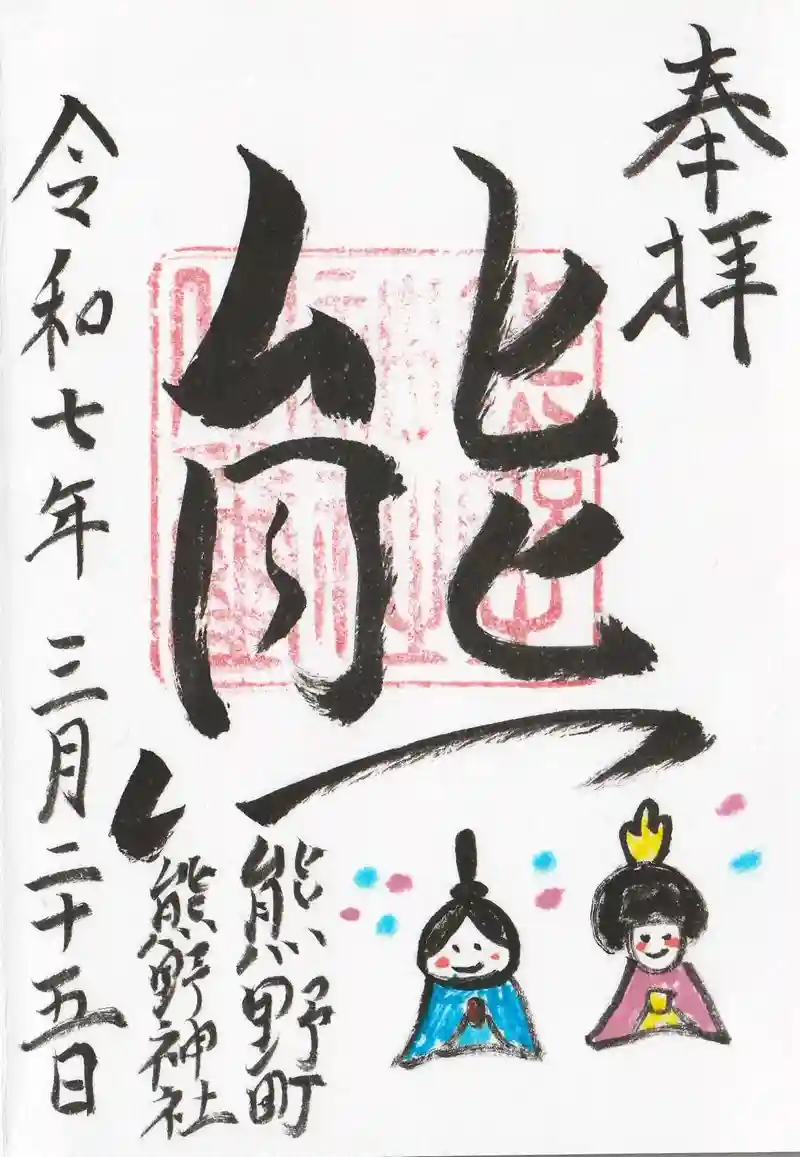 奉拝
熊
熊野町
熊野神社
令和七年三月二十五日